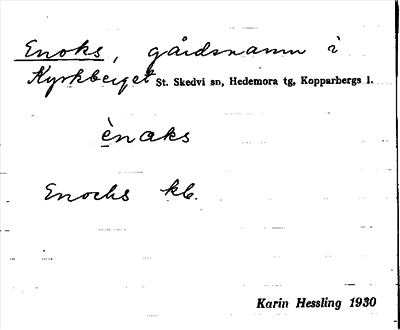 Enoks, gårdsnamn i
Kyrkberget St. Skedvi sn, Hedemora tg, Kopparbergs l.
ènɑks
Enochs kb.
Karin Hessling 1930